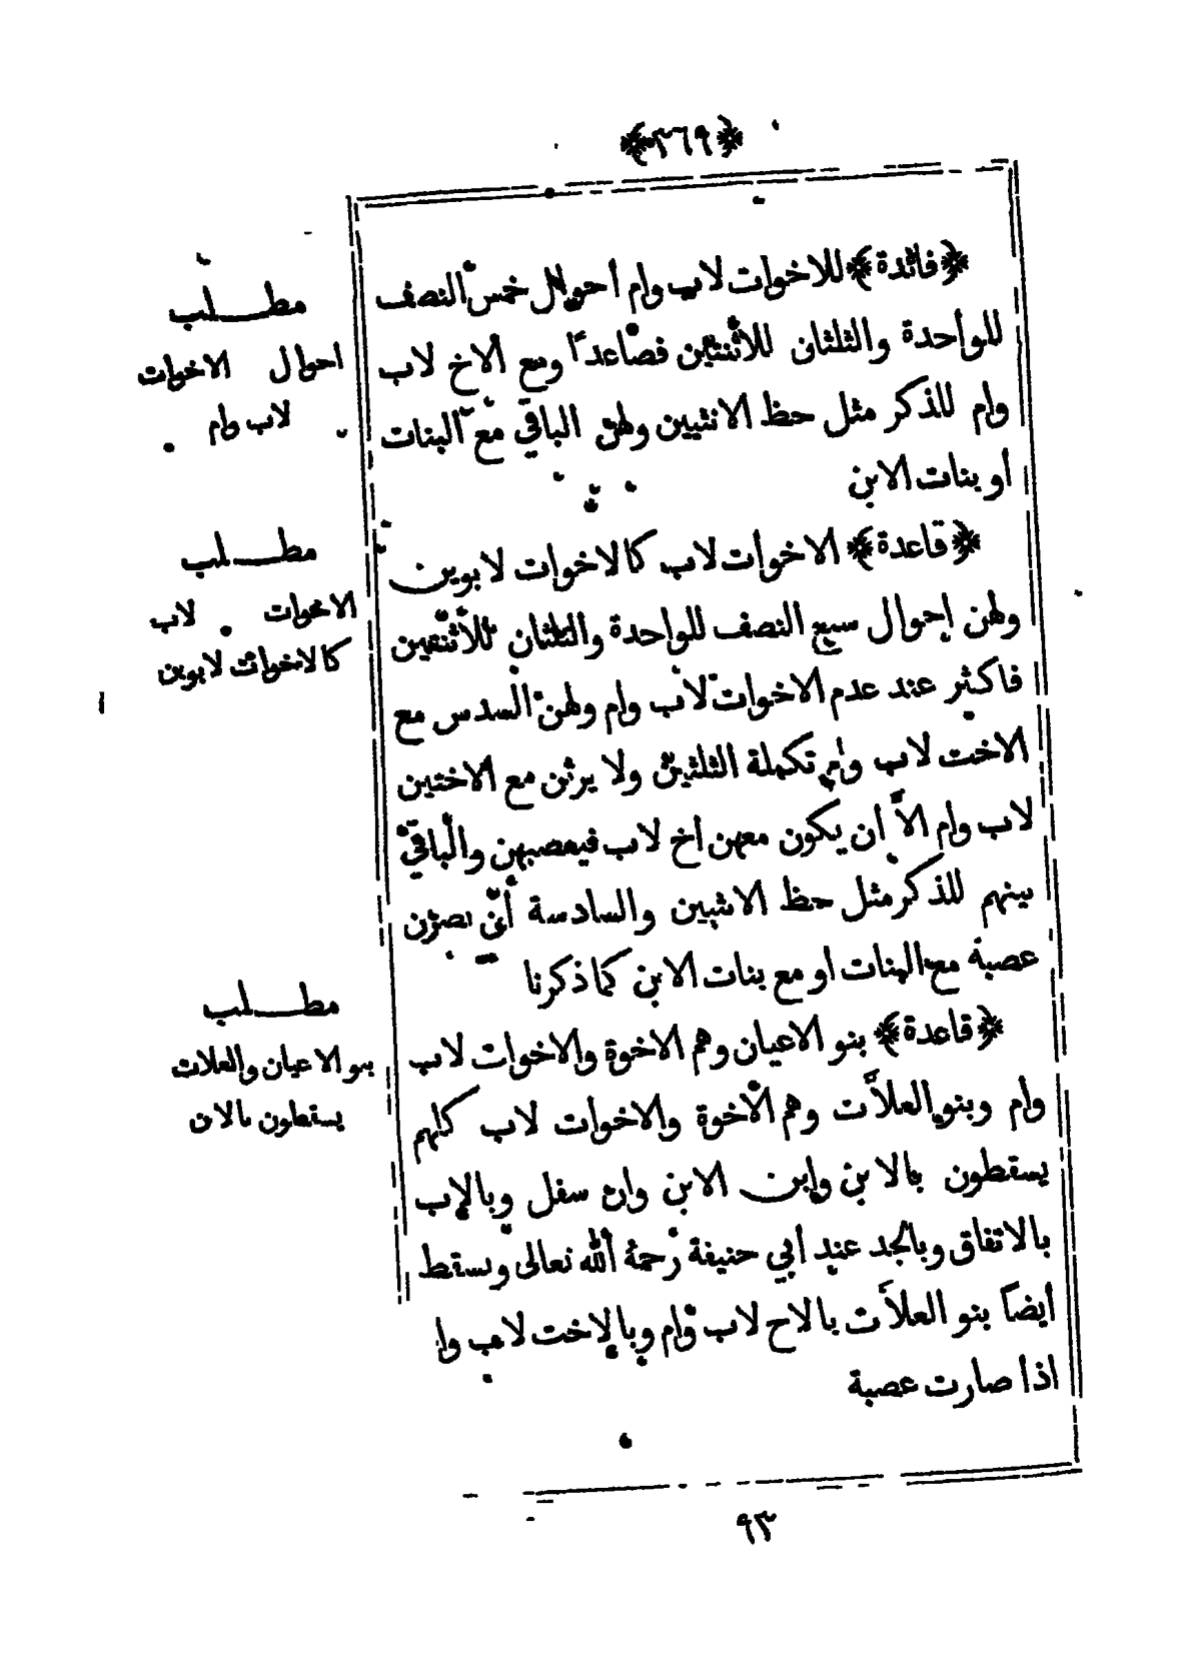 ﴿٣٦٩﴾
﴿فائدة﴾ للاخوات لاب وام أحوال خمس النصف
للواحدة والثلثان للاثنتين فصاعدا ومع الاخ لاب
وام للذكر مثل حظ الانثيين ولهن الباقي مع البنات
أو بنات الابن
﴿قاعدة﴾ الاخوات لاب كالاخوات لابوين
ولهن احوال سبع النصف للواحدة والثلثان للاثنتين
فاكثر عند عدم الاخوات لاب وام ولهن السدس مع
الاخت لاب وام تكملة الثلثين ولا يرثن مع الاختين
لاب وام الاّ أن يكون معهن اخ لاب فيعصبهن والباقي
بينهم للذكر مثل حظ الانثيين والسادسة أن يصرن
عصبة مع البنات او مع بنات الابن كما ذكرنا
﴿قاعدة﴾ بنو الاعيان وهم الاخوة والاخوات لاب
وام وبنو العلاّت وهم الاخوة والاخوات لاب كلهم
يسقطون بالابن وابن الابن وان سفل وبالاب
بالاتفاق وبالجد عند أبي حنيفة رحمة الله تعالى ويسقط
أيضاً بنو العلاّت بالاخ لاب وام وبالاخت لاب وا
اذا صارت عصبة
مطـــلب
احوال الاخوات
لاب وام
مطـــلب
الاخوات لاب
كالاخوات لابوين
مطـــلب
بنو الاعيان والعلات
يسقطون بالابن
٩٣